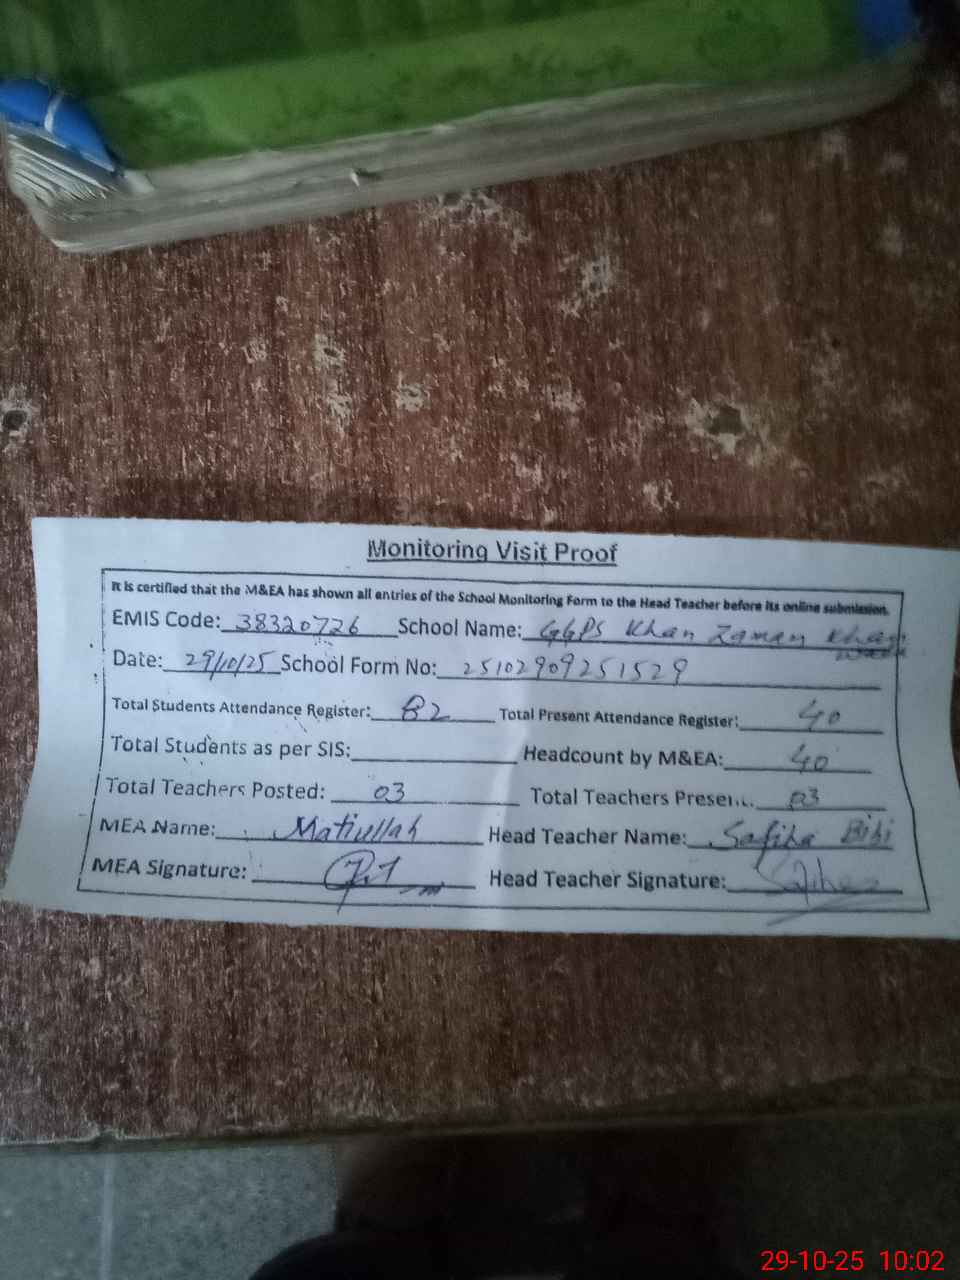 Monitoring Visit Proof
It is certified that the M&EA has shown all entries of the School Monitoring Form to the Head Teacher before its online submission.
EMIS Code: 38320726 School Name: GGPS Khan Zaman Khan
Date: 29/10/25 School Form No: 25102909251529
Total Students Attendance Register: 82 Total Present Attendance Register: 40
Total Students as per SIS: Headcount by M&EA: 40
Total Teachers Posted: 03 Total Teachers Present: 03
MEA Name: Matiullah Head Teacher Name: Safiha Bibi
MEA Signature: Head Teacher Signature:
29-10-25 10:02